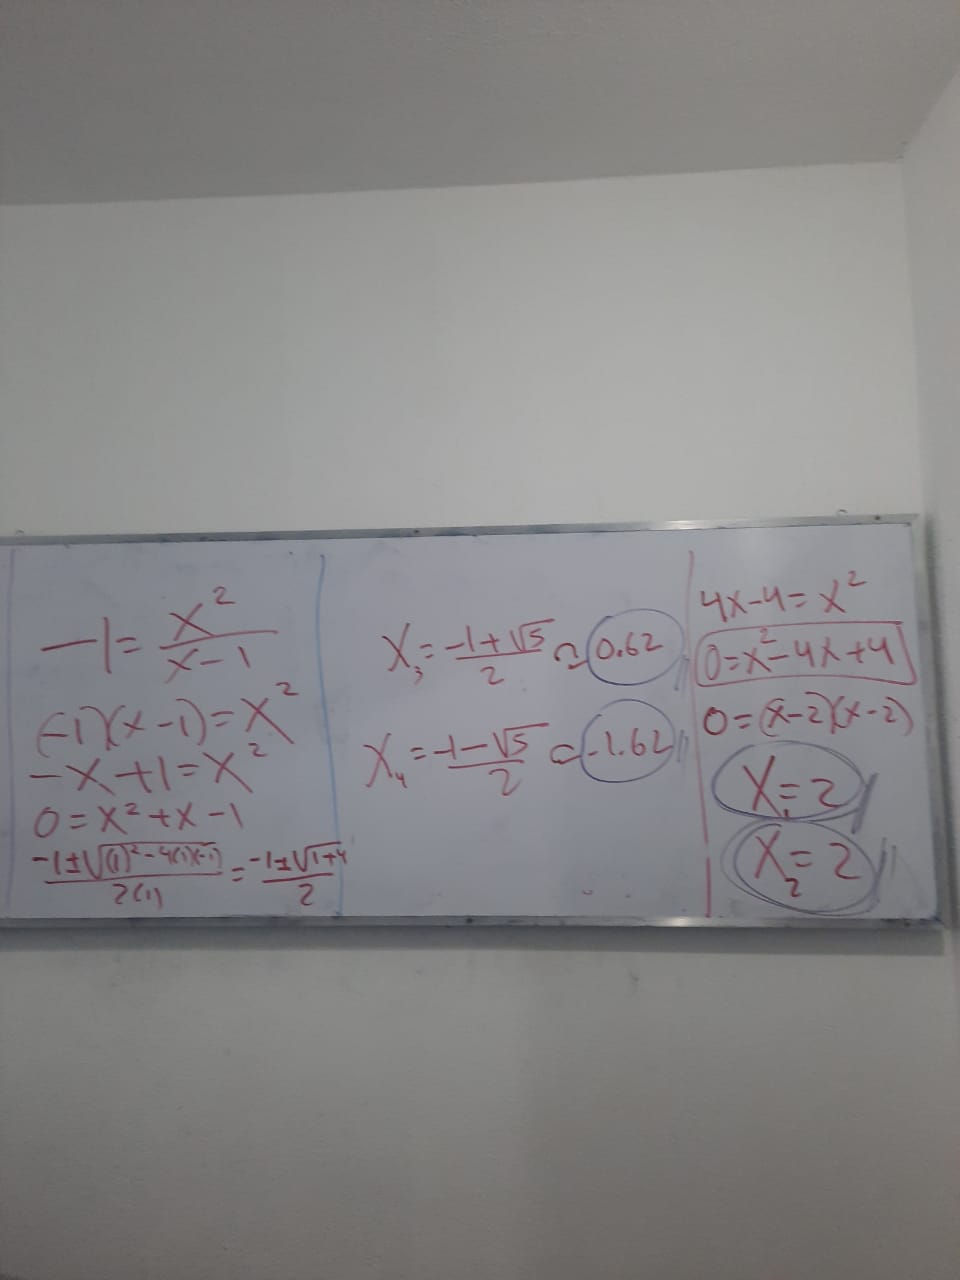 -1 = x²/(x-1)
(-1)(x-1) = x²
-x+1 = x²
0 = x²+x-1
(-1±√((1)²-4(1)(-1)))/(2(1)) = (-1±√(1+4))/2
X₃ = (-1+√5)/2 ≈ 0.62
X₄ = (-1-√5)/2 ≈ -1.62
4x-4 = x²
0 = x²-4x+4
0 = (x-2)(x-2)
X₁ = 2
X₂ = 2